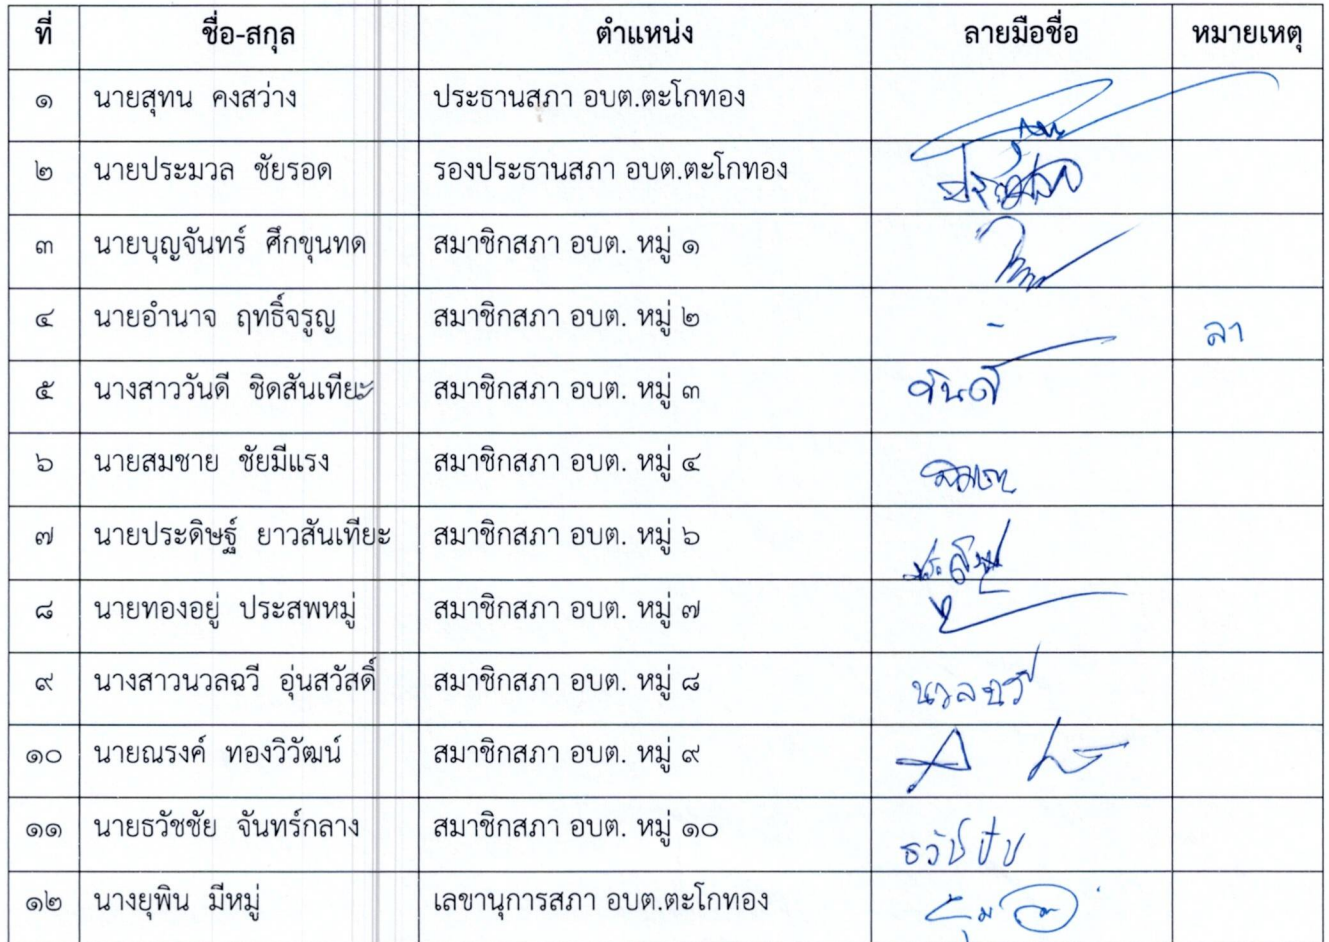 ที่ ชื่อ-สกุล ตำแหน่ง ลายมือชื่อ หมายเหตุ
๑ นายสุทน คงสว่าง ประธานสภา อบต.ตะโกทอง
๒ นายประมวล ชัยรอด รองประธานสภา อบต.ตะโกทอง
๓ นายบุญจันทร์ ศึกขุนทด สมาชิกสภา อบต. หมู่ ๑
๔ นายอำนาจ ฤทธิ์จรูญ สมาชิกสภา อบต. หมู่ ๒ - ลา
๕ นางสาววันดี ชิดสันเทียะ สมาชิกสภา อบต. หมู่ ๓ วันดี
๖ นายสมชาย ชัยมีแรง สมาชิกสภา อบต. หมู่ ๔
๗ นายประดิษฐ์ ยาวสันเทียะ สมาชิกสภา อบต. หมู่ ๖
๘ นายทองอยู่ ประสพหมู่ สมาชิกสภา อบต. หมู่ ๗
๙ นางสาวนวลฉวี อุ่นสวัสดิ์ สมาชิกสภา อบต. หมู่ ๘ นวลฉวี
๑๐ นายณรงค์ ทองวิวัฒน์ สมาชิกสภา อบต. หมู่ ๙
๑๑ นายธวัชชัย จันทร์กลาง สมาชิกสภา อบต. หมู่ ๑๐ ธวัชชัย
๑๒ นางยุพิน มีหมู่ เลขานุการสภา อบต.ตะโกทอง